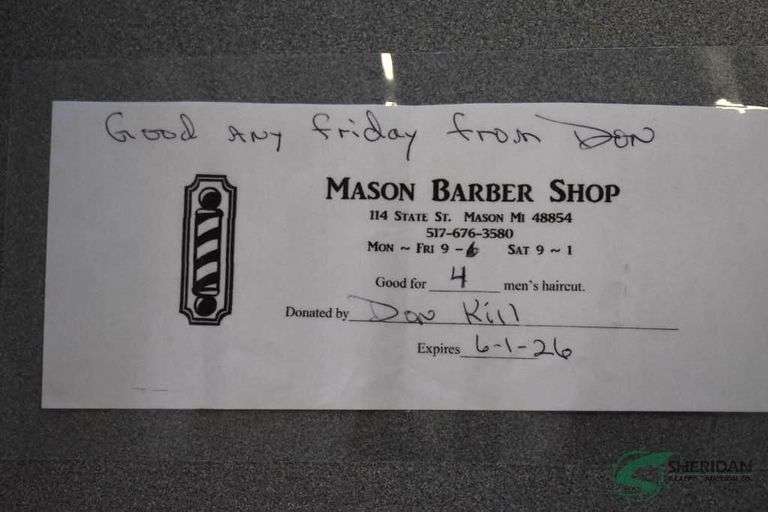 Good ANY Friday from DON
MASON BARBER SHOP
114 STATE ST. MASON MI 48854
517-676-3580
MON ~ FRI 9 - 6 SAT 9 ~ 1
Good for 4 men's haircut.
Donated by Don Kill
Expires 6-1-26
SHERIDAN